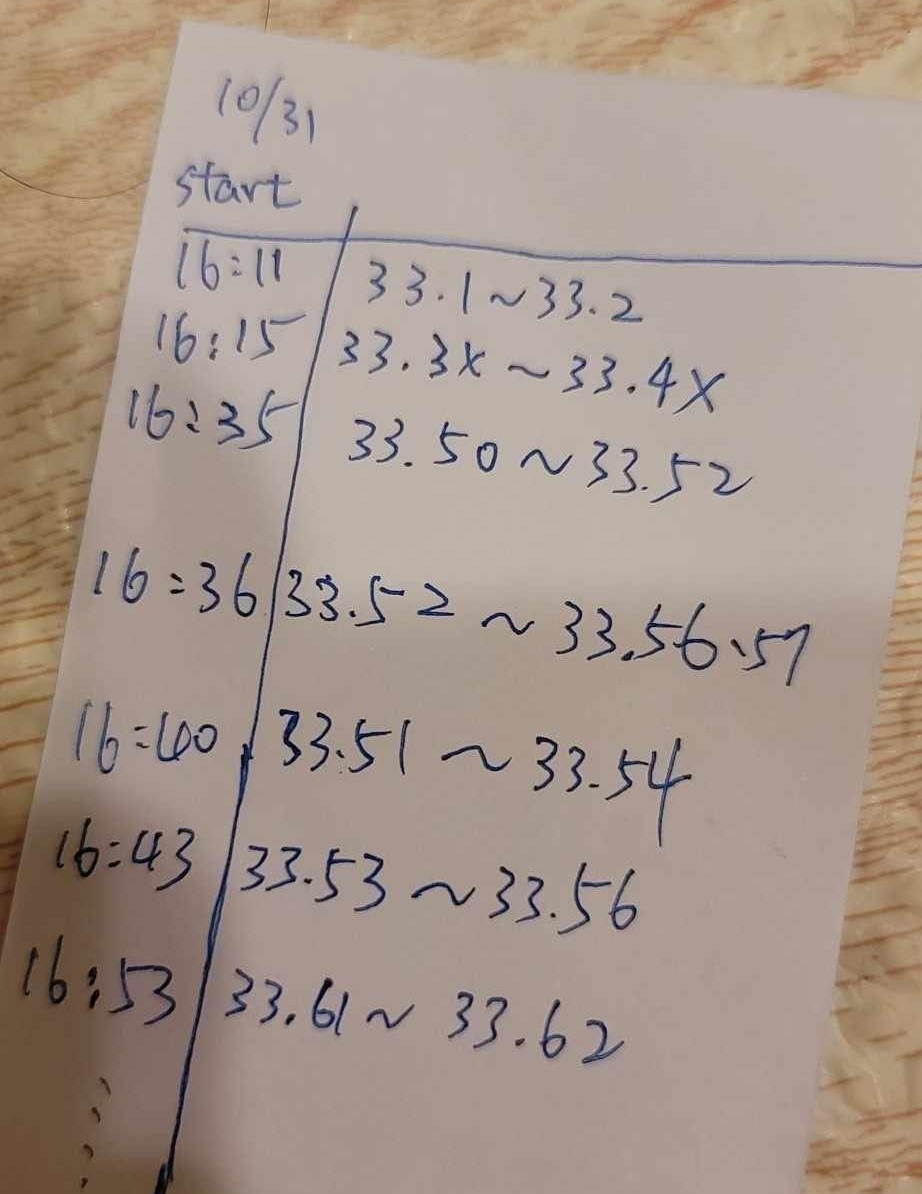 10/31
start
16:11 33.1~33.2
16:15 33.3x~33.4x
16:35 33.50~33.52
16:36 33.52~33.56、57
16:40 33.51~33.54
16:43 33.53~33.56
16:53 33.61~33.62